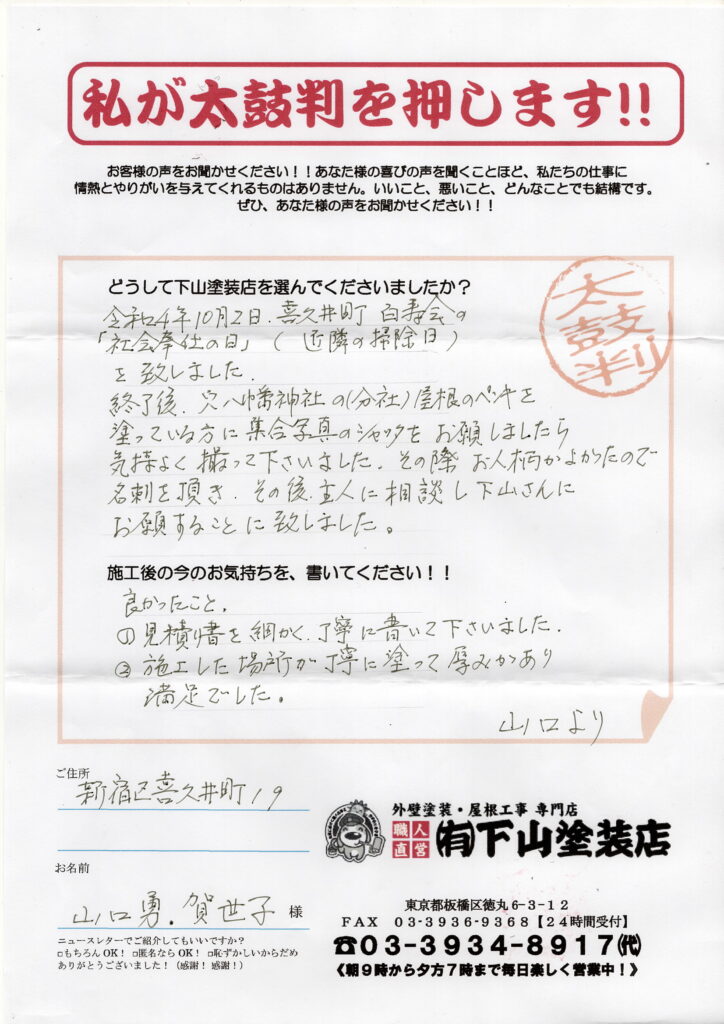 私が太鼓判を押します!!
お客様の声をお聞かせください！！あなた様の喜びの声を聞くことほど、私たちの仕事に
情熱とやりがいを与えてくれるものはありません。いいこと、悪いこと、どんなことでも結構です。
ぜひ、あなた様の声をお聞かせください！！
太鼓判
どうして下山塗装店を選んでくださいましたか？
令和4年10月2日、喜久井町 百寿会の
「社会奉仕の日」（近隣の掃除日）
を致しました。
終了後、穴八幡神社の(分社)屋根のペンキを
塗っている方に集合写真のシャッタをお願しましたら
気持よく撮って下さいました。その際お人柄がよかったので
名刺を頂き、その後、主人に相談し下山さんに
お願することに致しました。
施工後の今のお気持ちを、書いてください！！
良かったこと、
①見積り書を細かく、丁寧に書いて下さいました。
②施工した場所が丁寧に塗って厚みがあり
満足でした。
山口より
ご住所
新宿区喜久井町19
お名前
山口勇・賀世子 様
ニュースレターでご紹介してもいいですか？
□もちろんOK！ □匿名ならOK！ □恥ずかしいからだめ
ありがとうございました！（感謝！感謝！）
外壁塗装・屋根工事 専門店
職人直営 (有)下山塗装店
東京都板橋区徳丸6-3-12
FAX 03-3936-9368【24時間受付】
☎03-3934-8917(代)
《朝9時から夕方7時まで毎日楽しく営業中！》